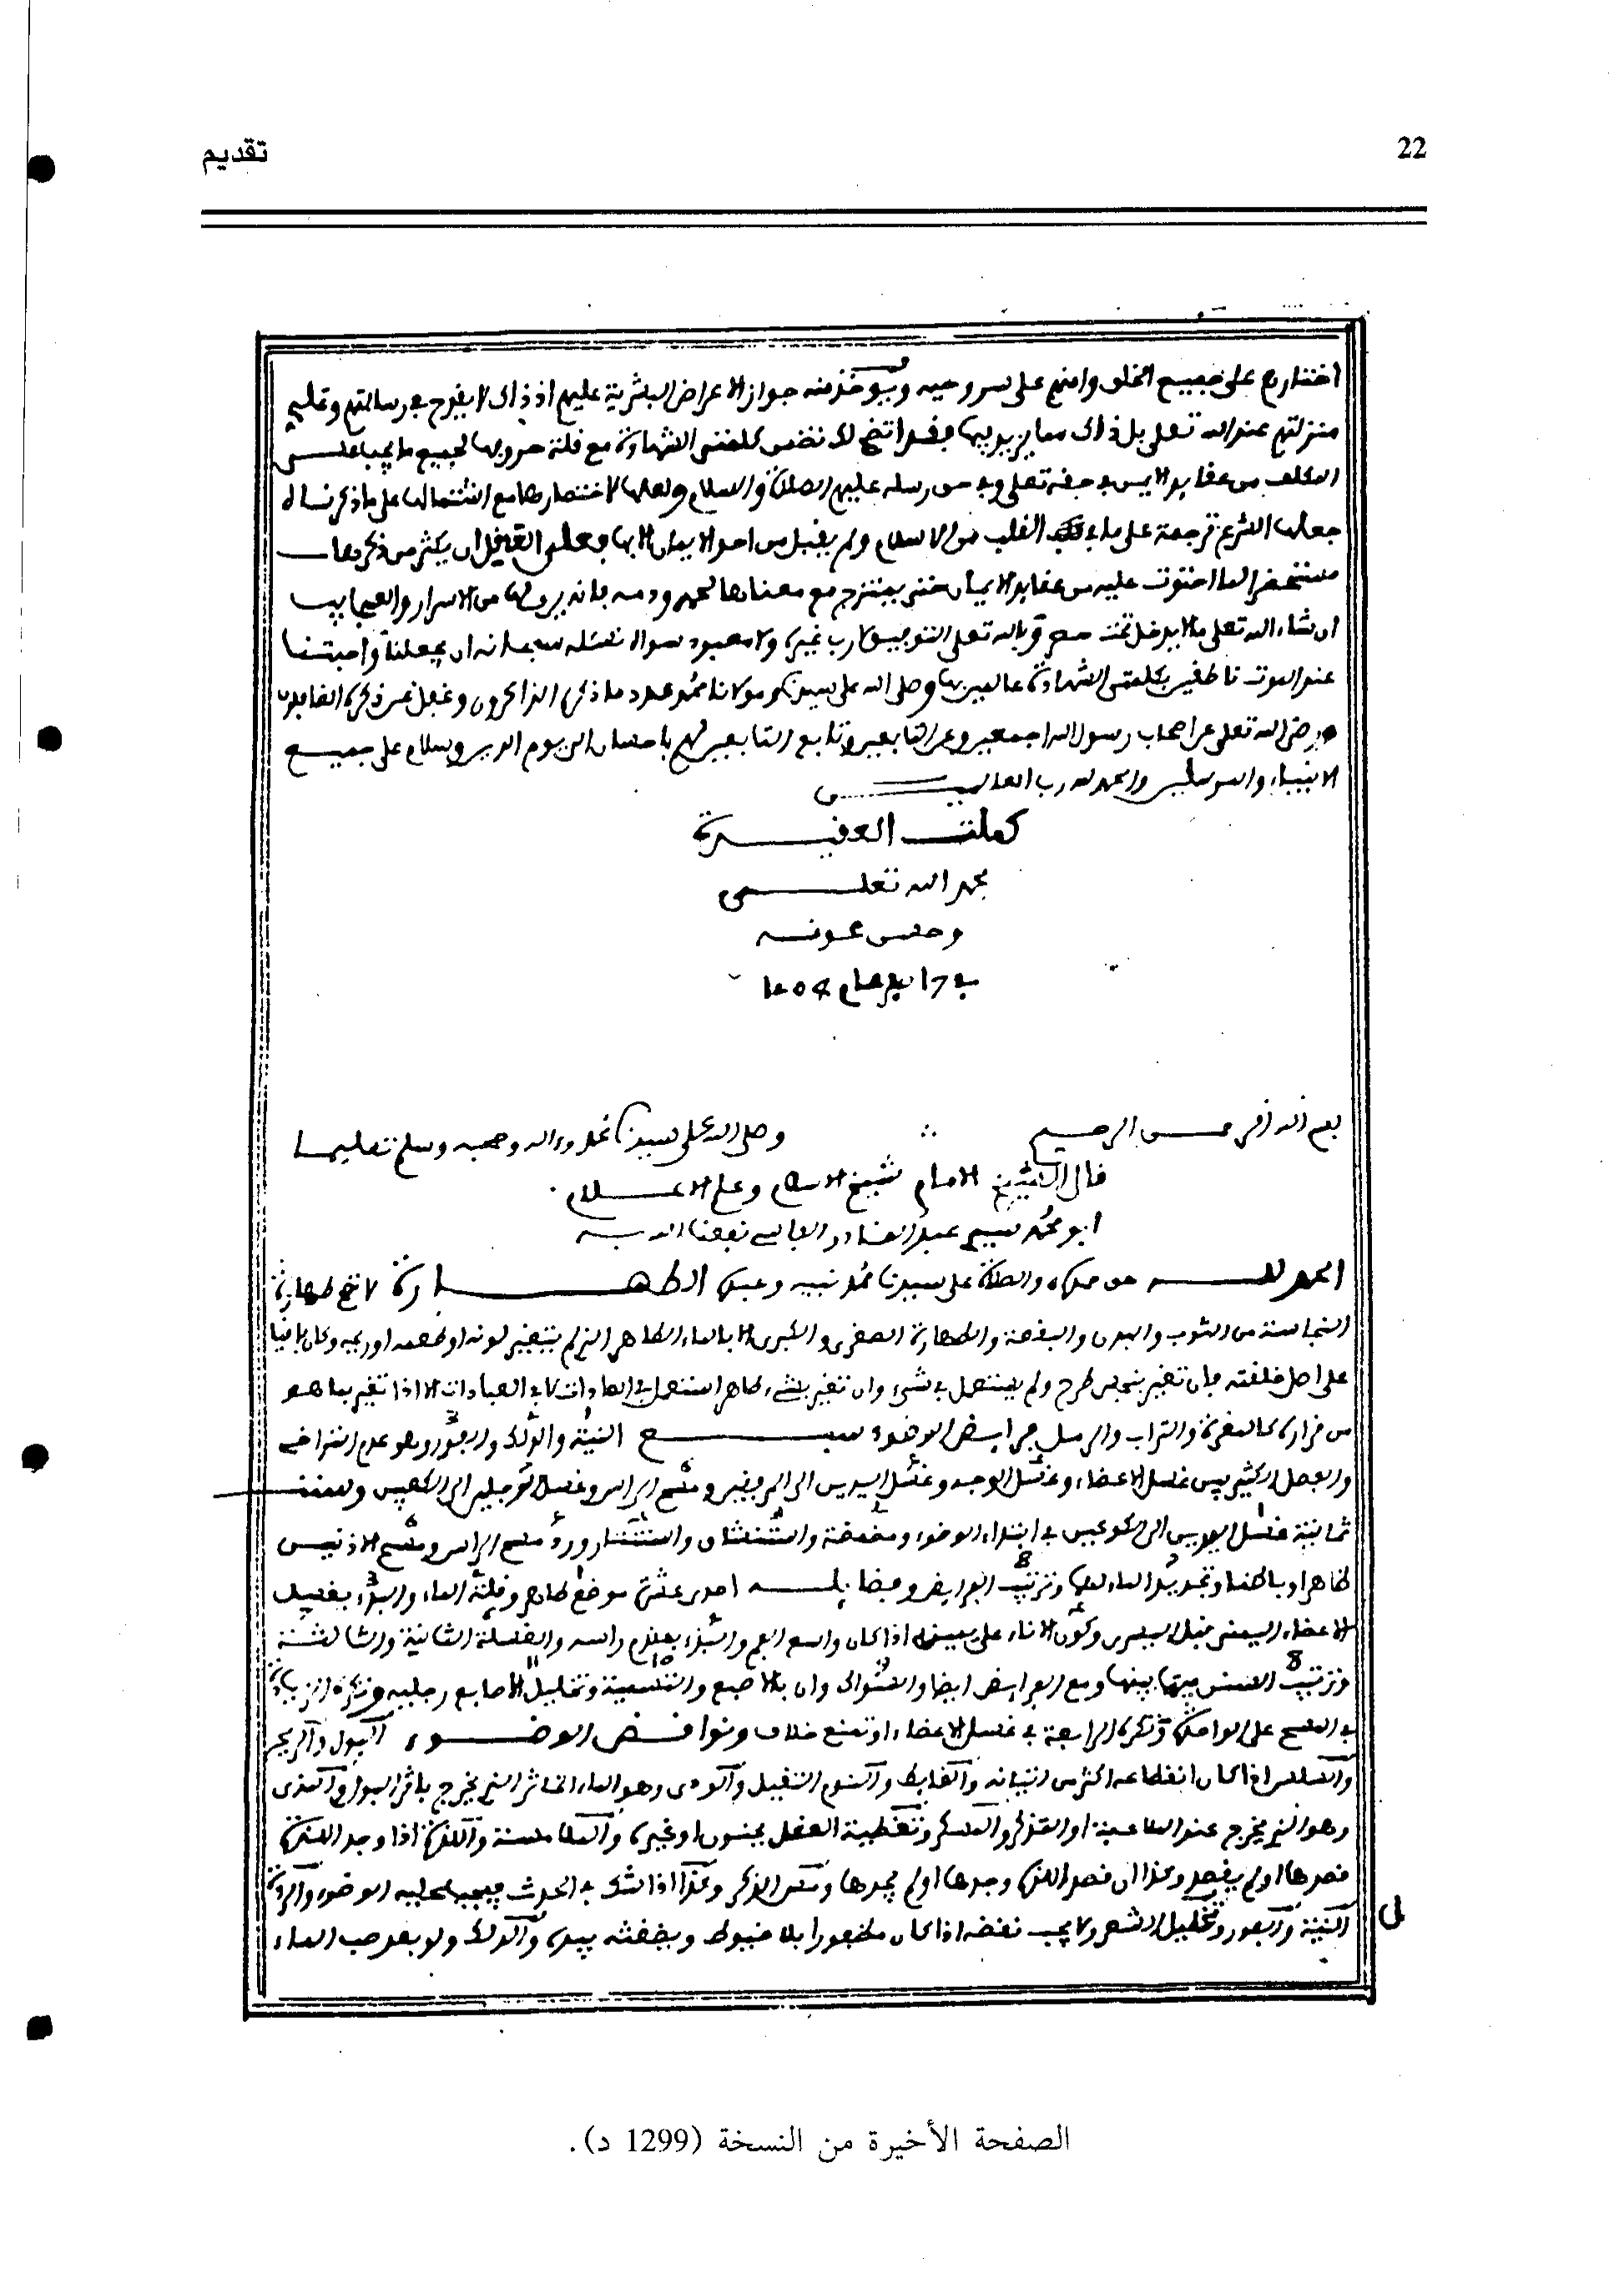 22
تقديم
اختارهم على جميع الخلق وامنهم على سر وحيه ويوخذ منه جواز الاعراض البشرية عليهم اذ ذاك لا يقدح في رسالتهم وعلو
منزلتهم عند الله تعلى بل ذاك مما يزيد فيها فقد اتضح لك تضمن كلمتي الشهادة مع قلة حروفها لجميع ما يجب على
المكلف من عقايد الايمن في حقه تعلى وفي حق رسله عليهم الصلاة والسلام ولعلها لاختصارها مع اشتمالها على ما ذكرناه
جعلها الشرع ترجمة على ما في القلب من الاسلام ولم يقبل من احد الايمان الا بها فعلى العاقل ان يكثر من ذكرها
مستحضرا لما احتوت عليه من عقايد الايمان حتى يمتزج مع معناها لحمه ودمه فانه يرى لها من الاسرار والعجايب
ان شاء الله تعلى ما لا يدخل تحت حصر وبالله تعلى التوفيق لا رب غيره ولا معبود سواه نسئله سبحانه ان يجعلنا واحبتنا
عند الموت ناطقين بكلمتي الشهادة عالمين بها وصلى الله على سيدنا ومولانا محمد عدد ما ذكره الذاكرون وغفل عن ذكره الغافلون
ورضي الله تعلى عن اصحاب رسول الله اجمعين وعن التابعين وتابع التابعين لهم باحسان الى يوم الدين وسلام على جميع
الانبياء والمرسلين والحمد لله رب العالمين
كملت العقيدة
بحمد الله تعلى
وحسن عونه
بسم الله الرحمن الرحيم وصلى الله على سيدنا محمد وءاله وصحبه وسلم تسليما
قال الشيخ الامام شيخ الاسلام وعلم الاعلام
ابو محمد سيدي عبد القادر الفاسي نفعنا الله به
الحمد لله حق حمده والصلاة على سيدنا محمد نبيه وعبده الطهارة لا تصح طهارة
النجاسة من الثوب والبدن والبقعة والطهارة الصغرى والكبرى الا بالماء الطاهر الذي لم يتغير لونه او طعمه او ريحه وكان باقيا
على اصل خلقته فان تغير بنجس طرح ولم يستعمل في شيء وان تغير بشيء طاهر استعمل في العادات لا في العبادات الا اذا تغير بما هو
من قراره كالمغرة والتراب والرمل فرايض الوضوء سبع النية والدلك والفور وهو عدم التراخي
والفصل الكثير بين غسل الاعضاء وغسل الوجه وغسل اليدين الى المرفقين ومسح الراس وغسل الرجلين الى الكعبين وسننه
ثمانية غسل اليدين الى الكوعين في ابتداء الوضوء ومضمضة واستنشاق واستنثار ورد مسح الراس ومسح الاذنين
ظاهرا وباطنا وتجديد الماء لهما وترتيب الفرايض وفضايله احدى عشرة موضع طاهر وقلة الماء والبدء بغسل
الاعضاء اليمنى قبل اليسرى وكون الاناء على يمينه اذا كان واسع الفم والبدء بمقدم راسه والغسلة الثانية والثالثة
وترتيب السنن فيما بينها ومع الفرايض ايضا والسواك وان بالاصبع والتسمية وتخليل اصابع رجليه وتكره الزيادة
في المسح على الواحدة وتكره الرابعة في غسل الاعضاء او تمنع خلاف ونواقض الوضوء البول والريح
والسلس اذا كان انقطاعه اكثر من اتيانه والغايط والنوم الثقيل والودي وهو الماء الخاثر الذي يخرج باثر البول والمذي
وهو الذي يخرج عند الملاعبة او التذكر والسكر وتغطية العقل بجنون او غيره والملامسة واللذة اذا وجد اللذة
قصدها او لم يقصد وكذا ان قصد اللذة وجدها او لم يجدها ومس الذكر وكذا اذا شك في الحدث فيجب عليه الوضوء والردة
النية والفور وتخليل الشعر ولا يجب نقضه اذا كان مضفورا بلا خيوط ويضغثه بيده والدلك ولو بعد صب الماء
الصفحة الأخيرة من النسخة (1299 د).